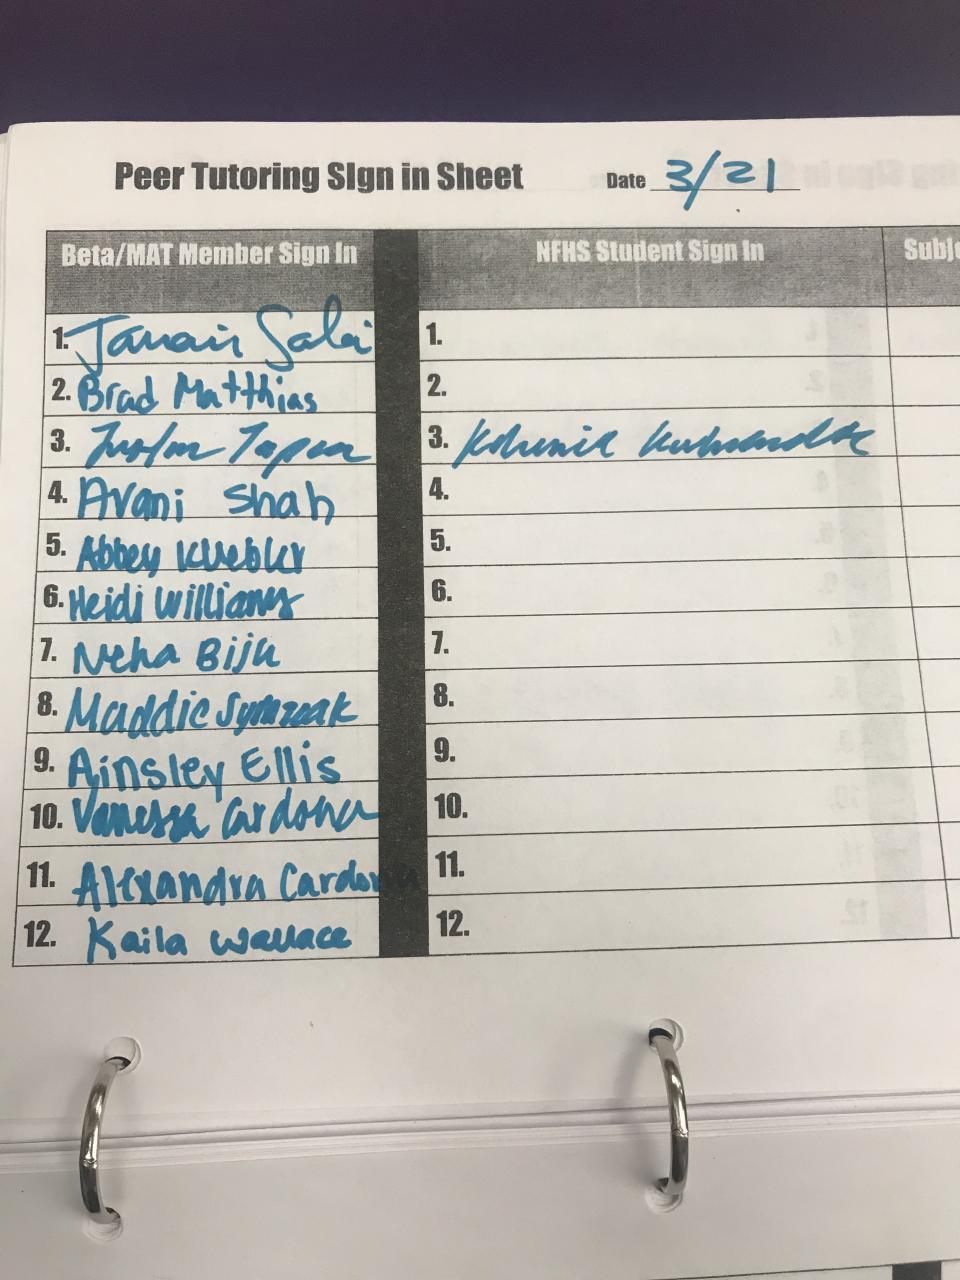 Peer Tutoring SIgn in Sheet Date 3/21
Beta/MAT Member Sign In NFHS Student Sign In
1. 1.
2. Brad Matthias 2.
3. 3.
4. Avani Shah 4.
5. Abbey 5.
6. Heidi Williams 6.
7. Neha Biju 7.
8. Maddie 8.
9. Ainsley Ellis 9.
10. Vanessa Cardona 10.
11. Alexandra Cardona 11.
12. Kaila Wallace 12.